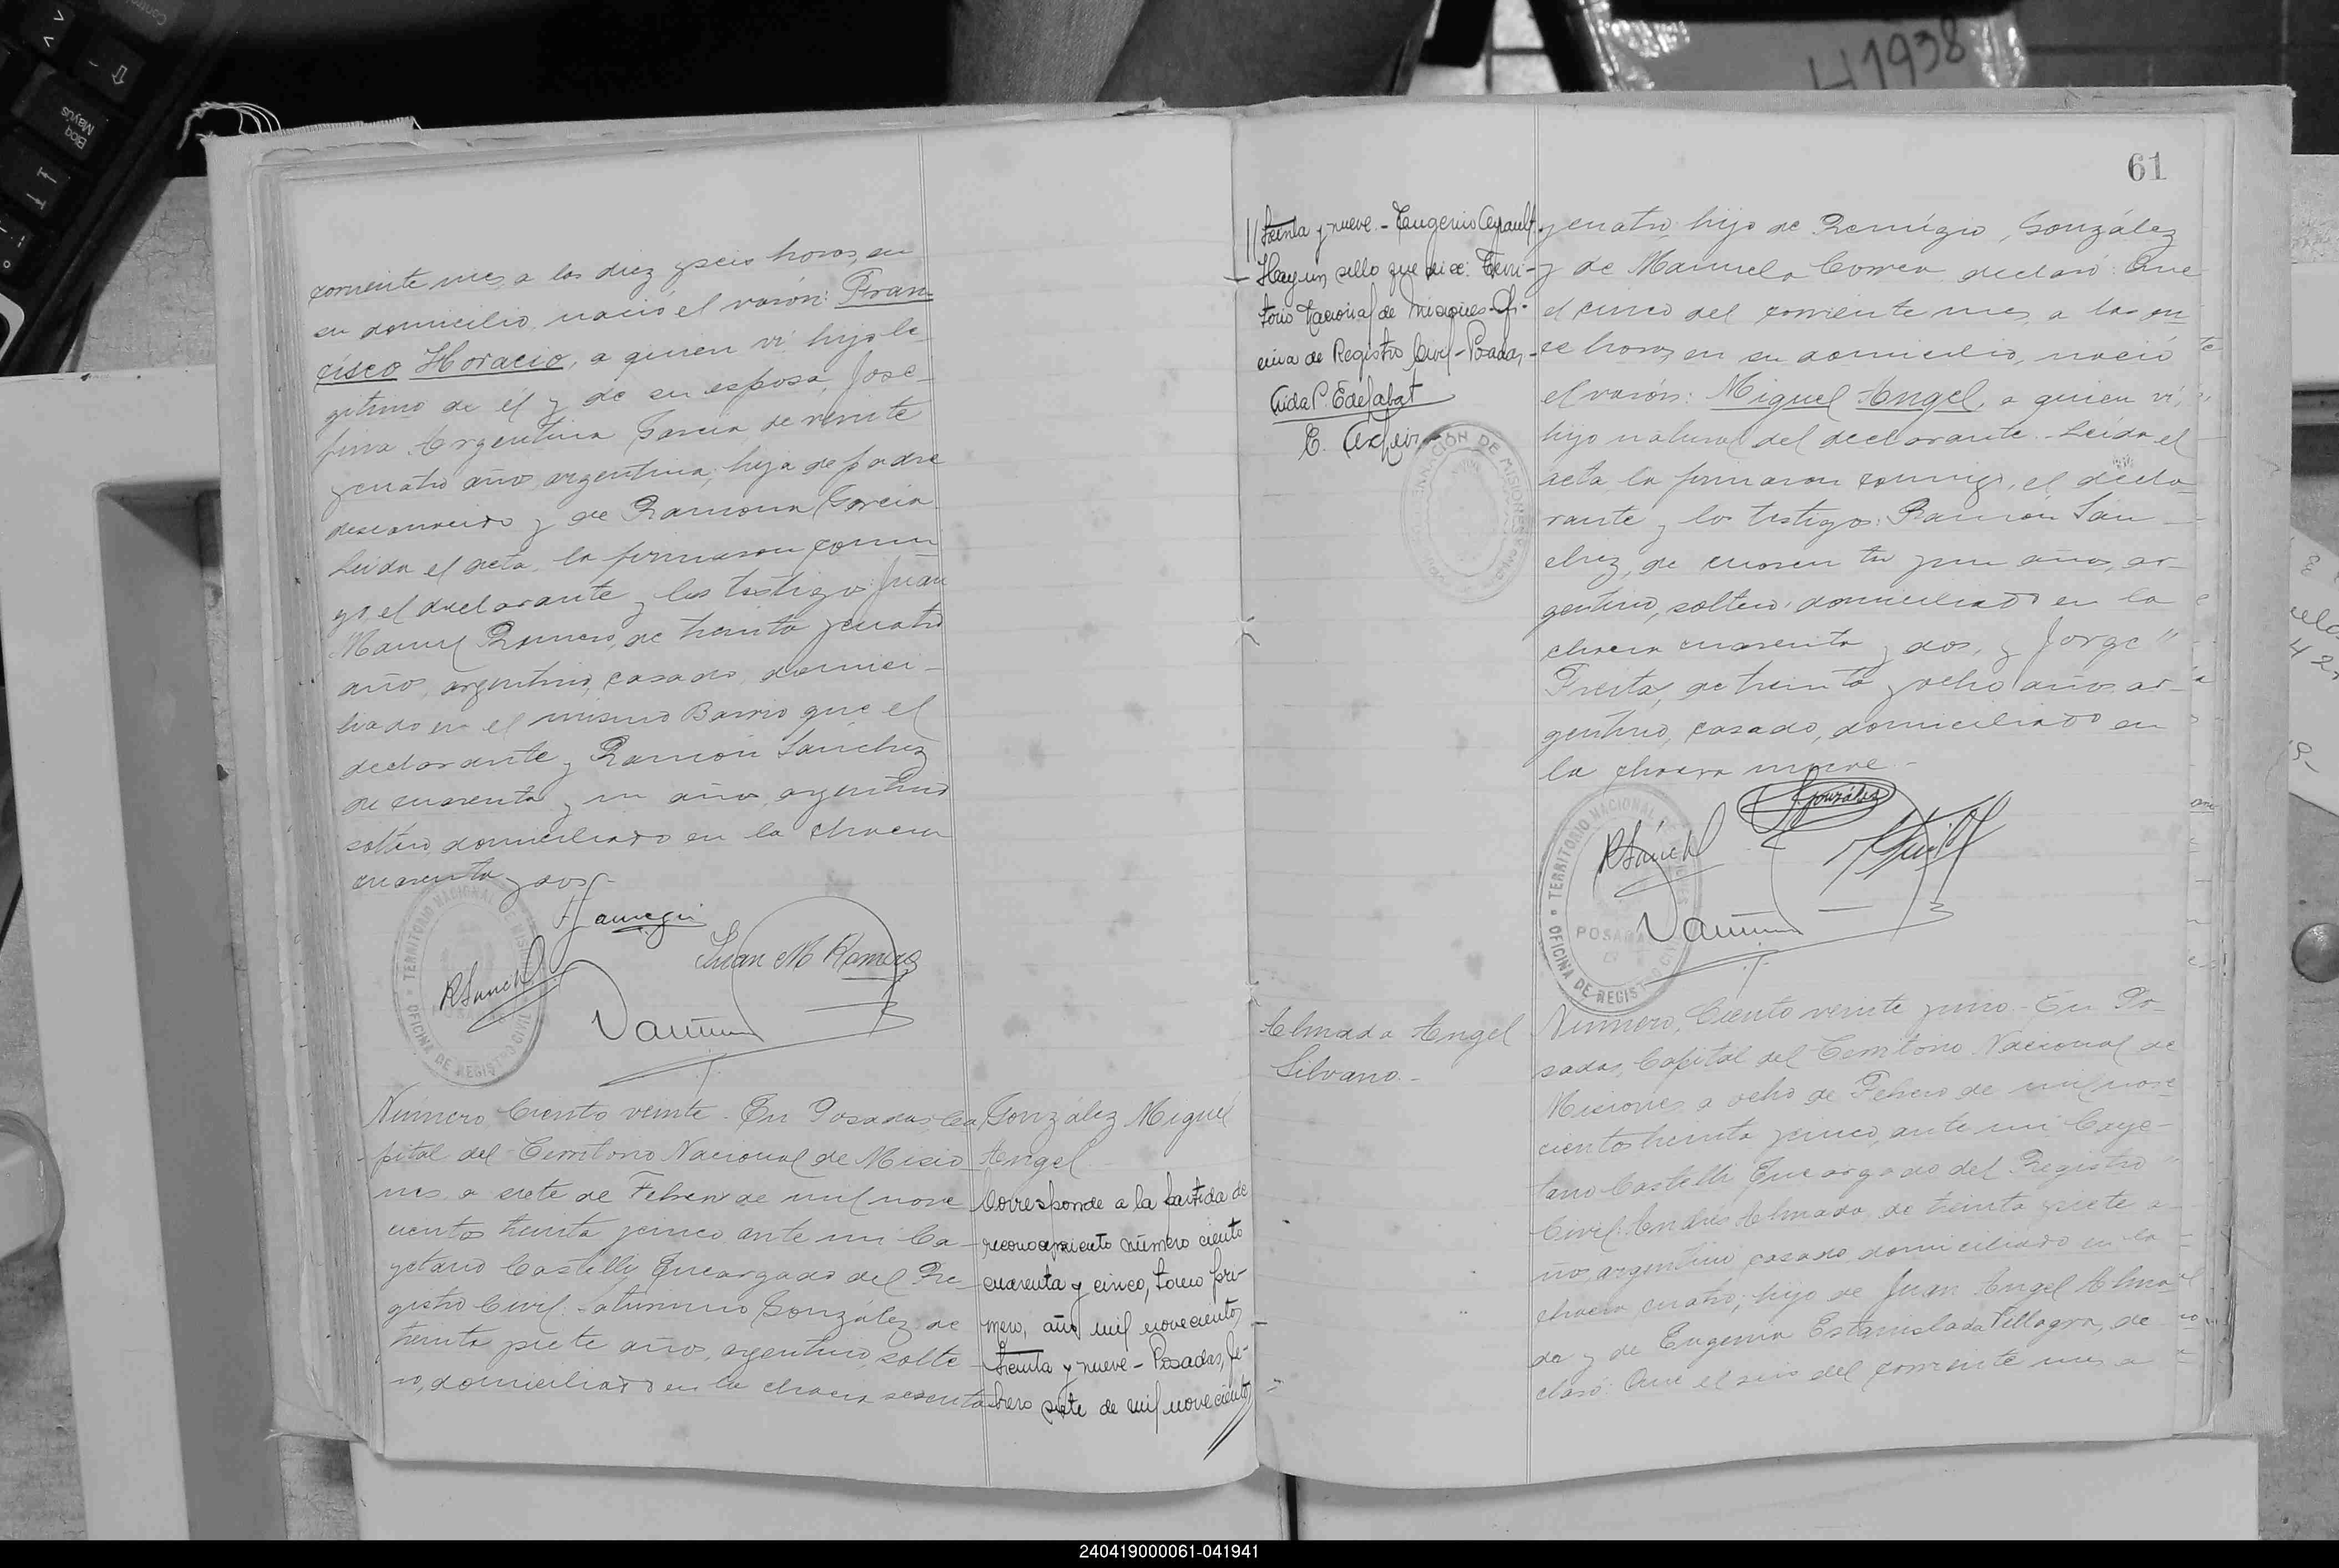 corriente mes, a las diez y seis horas, en
su domicilio, nació el varón: Fran
cisco Horacio, a quien vi hijo le-
gitimo de él y de su esposa, Jose-
fina Argentina García, de veinte
y cuatro años, argentina, hija de padre
desconocido y de Ramona García.
Leida el acta, la firmaron conmi
go, el declarante y los testigos: Juan
Manuel Romero, de treinta y cuatro
años, argentino, casado, domici-
liado en el mismo Barrio que el
declarante y Ramón Sánchez
de cuarenta y un años, argentino
soltero, domiciliado en la chacra
cuarenta y dos.-
RSanch
Juan M Romero
TERRITORIO NACIONAL DE MISIONES
OFICINA DE REGISTRO CIVIL
Número Ciento veinte - En Posadas, Ca
pital del Territorio Nacional de Misio
nes, a siete de Febrero de mil nove
cientos treinta y cinco, ante mi Ca-
yetano Castelli, Encargado del Re-
gistro Civil: Saturnino González, de
treinta y siete años, argentino, solte-
ro, domiciliado en la chacra sesenta
González Miguel
Angel
Corresponde a la partida de
reconocimiento número ciento
cuarenta y cinco, tomo pri-
mero, año mil novecientos
treinta y nueve - Posadas, fe-
brero siete de mil novecientos
//
61
// treinta y nueve. - Eugenio
- Hay un sello que dice: Terri-
torio Nacional de Misiones - Ofi-
cina de Registro Civil - Posadas -
E.
GOBERNACIÓN DE MISIONES
y cuatro, hijo de Remigio González
y de Manuela Correa, declaró: Que
el cinco del corriente mes, a las on
ce horas, en su domicilio, nació
el varón: Miguel Angel, a quien vi,
hijo natural del declarante. Leida el
acta, la firmaron conmigo, el decla-
rante y los testigos: Ramón Sán-
chez, de cuarenta y un años, ar-
gentino, soltero, domiciliado en la
chacra cuarenta y dos, y Jorge "
Freita, de treinta y ocho años, ar-
gentino, casado, domiciliado en
la chacra nueve.-
González
RSánch
TERRITORIO NACIONAL DE MISIONES
POSADAS
OFICINA DE REGISTRO CIVIL
Almada Angel
Silvano.-
Número Ciento veinte y uno - En Po-
sadas, Capital del Territorio Nacional de
Misiones, a ocho de Febrero de mil nove
cientos treinta y cinco, ante mi Caye-
tano Castelli, Encargado del Registro "
Civil: Andrés Almada, de treinta y siete a-
ños, argentino, casado, domiciliado en la
chacra cuatro, hijo de Juan Angel Alma
da y de Eugenia Estanislada Villagra, de
claró: Que el seis del corriente mes a
H1938
Bloq
Mayús
240419000061-041941